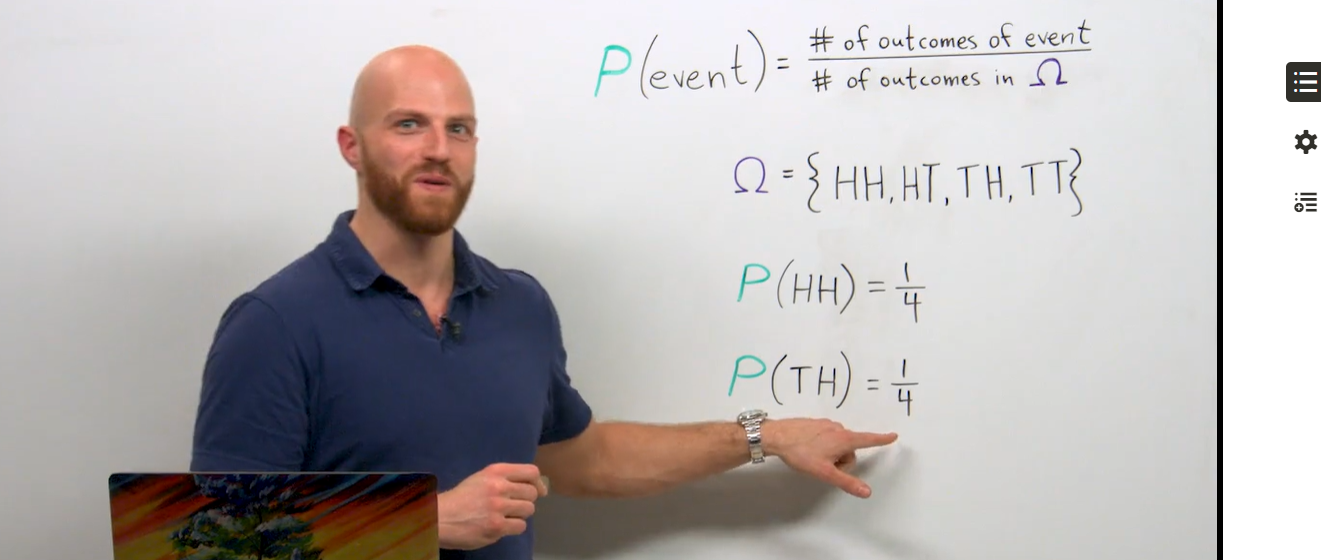 P(event) = # of outcomes of event / # of outcomes in Ω
Ω = {HH, HT, TH, TT}
P(HH) = 1/4
P(TH) = 1/4